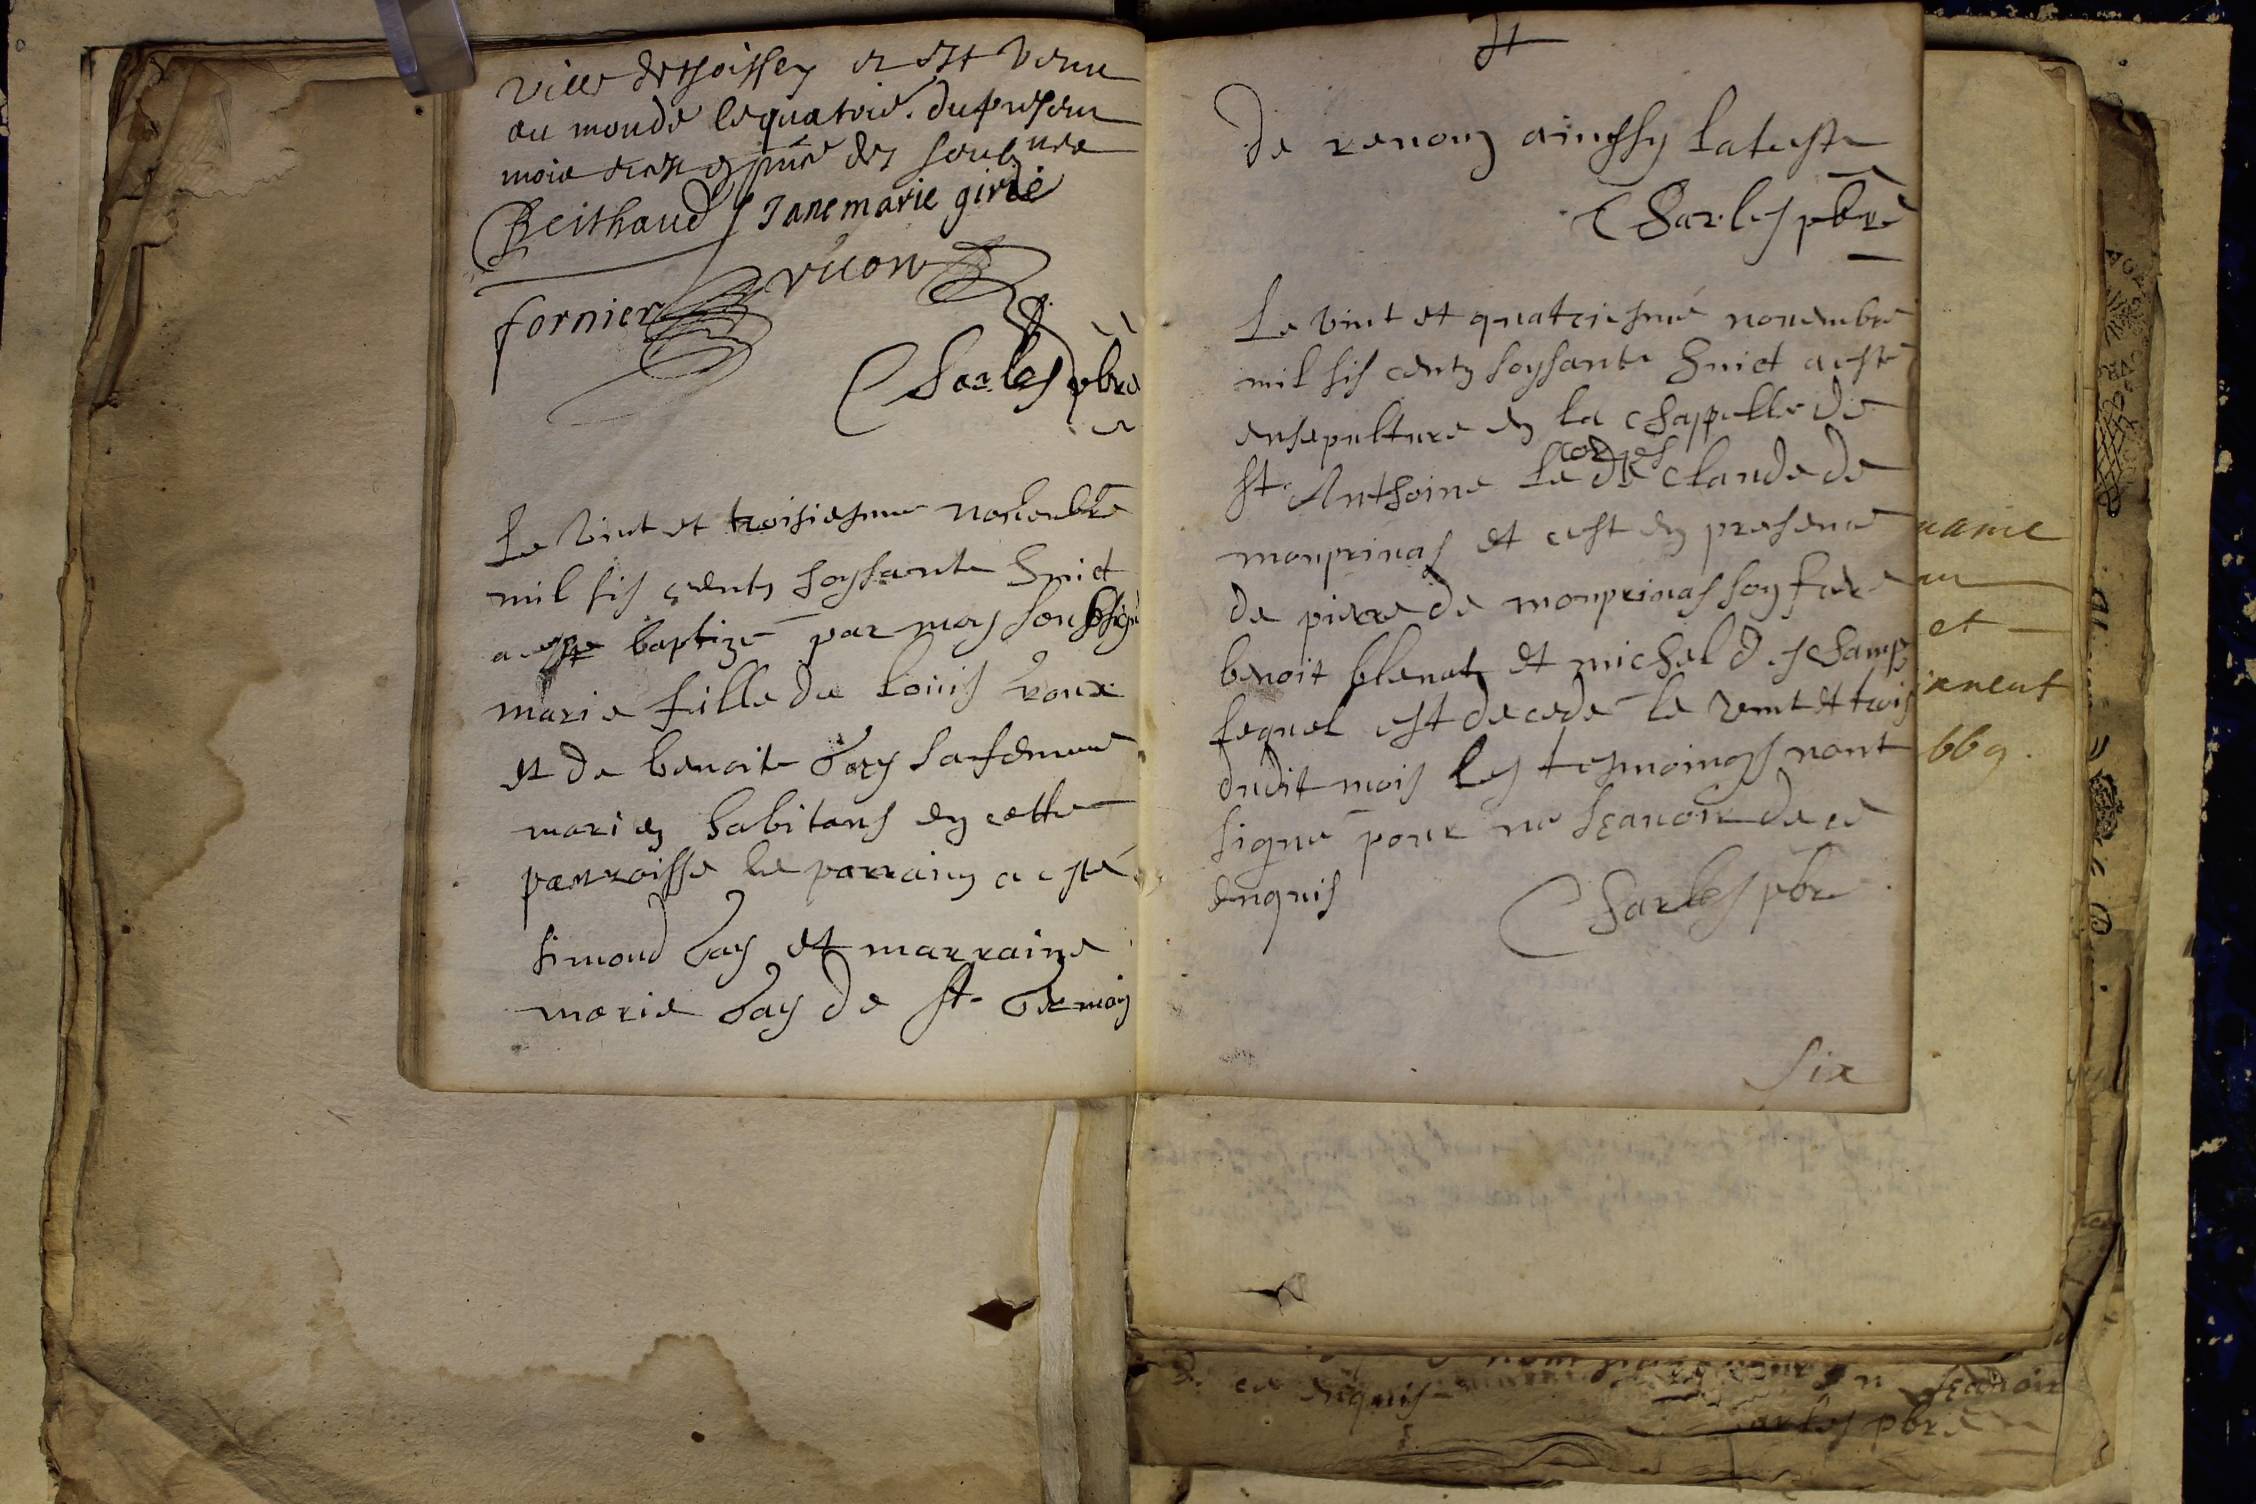 ville de Thoissey et est venu
au monde le quatorie. du present
mois en presence des soubsnes
Beithaud Janemarie girié
fornier
Charles pbre
Le vint et troisiesme novembre
mil sis centz soysante huict
a este baptizé par moy soubsigné
marie fille de louis roux
et de benoite Gay sa femme
mariez habitans en cette
parroisse le parrain a esté
simond Gay et marraine
marie Gay de st Germain
de renom ainssy lateste
Charles pbre
Le vint et quatriesme novembre
mil sis centz soysante huict a esté
ensepulture en la chappelle de
corps
st Anthoine le de claude de
monprivas et cest en presence
de pierre de monprivas son frere
benoit blenat et michel deschamps
lequel est decede le vint et trois
dudit mois les tesmoings nont
signé pour ne sçavoir de ce
enquis
Charles pbre
Six
et
669.
ce enquis
sçavoir
Charles pbre